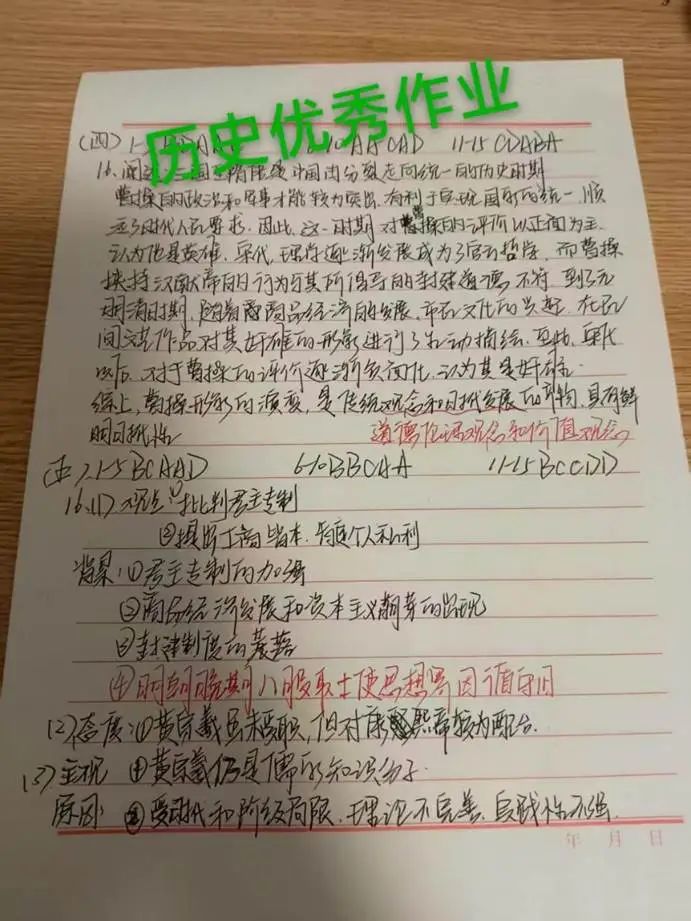 历史优秀作业
(四) 1-5 AACAD 11-15 CDABA
16. 三国至隋唐是中国由分裂走向统一的历史时期
曹操的政治和军事才能较为突出,有利于实现国家的统一,顺
应了时代人民要求,因此,这一时期对曹操的评价以正面为主,
认为他是英雄,宋代,理学逐渐发展成为了官方哲学,而曹操
挟持汉献帝的行为与其所倡导的封建道德不符,到了元
明清时期,随着商品经济的发展,市民文化的兴起,在民
间文艺作品对其奸雄的形象进行了生动描绘,至此,宋代
以后,对于曹操的评价逐渐负面化,认为其是奸雄.
综上,曹操形象的演变,是传统观念和时代发展的产物,具有鲜
明时代性 道德伦理观念和价值观念
(五)1-5 BCAAD 6-10 BBCAA 11-15 BCCDD
16.(1)观点:①批判君主专制
②提出工商皆本,肯定个人私利
背景:①君主专制的加强
②商品经济发展和资本主义萌芽的出现
③封建制度的衰落
④明朝晚期八股取士使思想界因循守旧
(2)态度:①黄宗羲虽未受职,但对康熙帝较为配合.
(3)主观 ①黄宗羲仍是儒家知识分子.
原因 ②受时代和阶级局限,理论不完善,实践性不强.
年 月 日